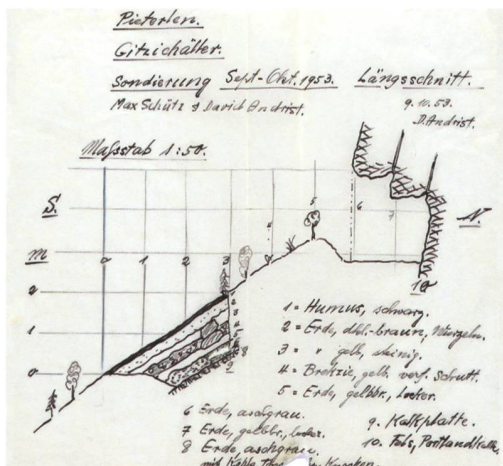 Pieterlen.
Gitzichälter.
Sondierung Sept-Okt. 1953. Längsschnitt.
Max Schütz & David Andrist. 9.10.53.
D.Andrist.
Maßstab 1:50.
S. N.
m 0 1 2 3 4 5 6 7
2
1
0
10
1 = Humus, schwarz.
2 = Erde, dkl.-braun, Wurzeln.
3 = " gelb, steinig.
4 = Brekzie, gelb. verf. Schutt.
5 = Erde, gelbbr., locker.
6 Erde, aschgrau.
7 Erde, gelbbr., locker.
8 Erde, aschgrau.
mit Kohle
9. Kalkplatte.
10. Fels, Portlandkalk.